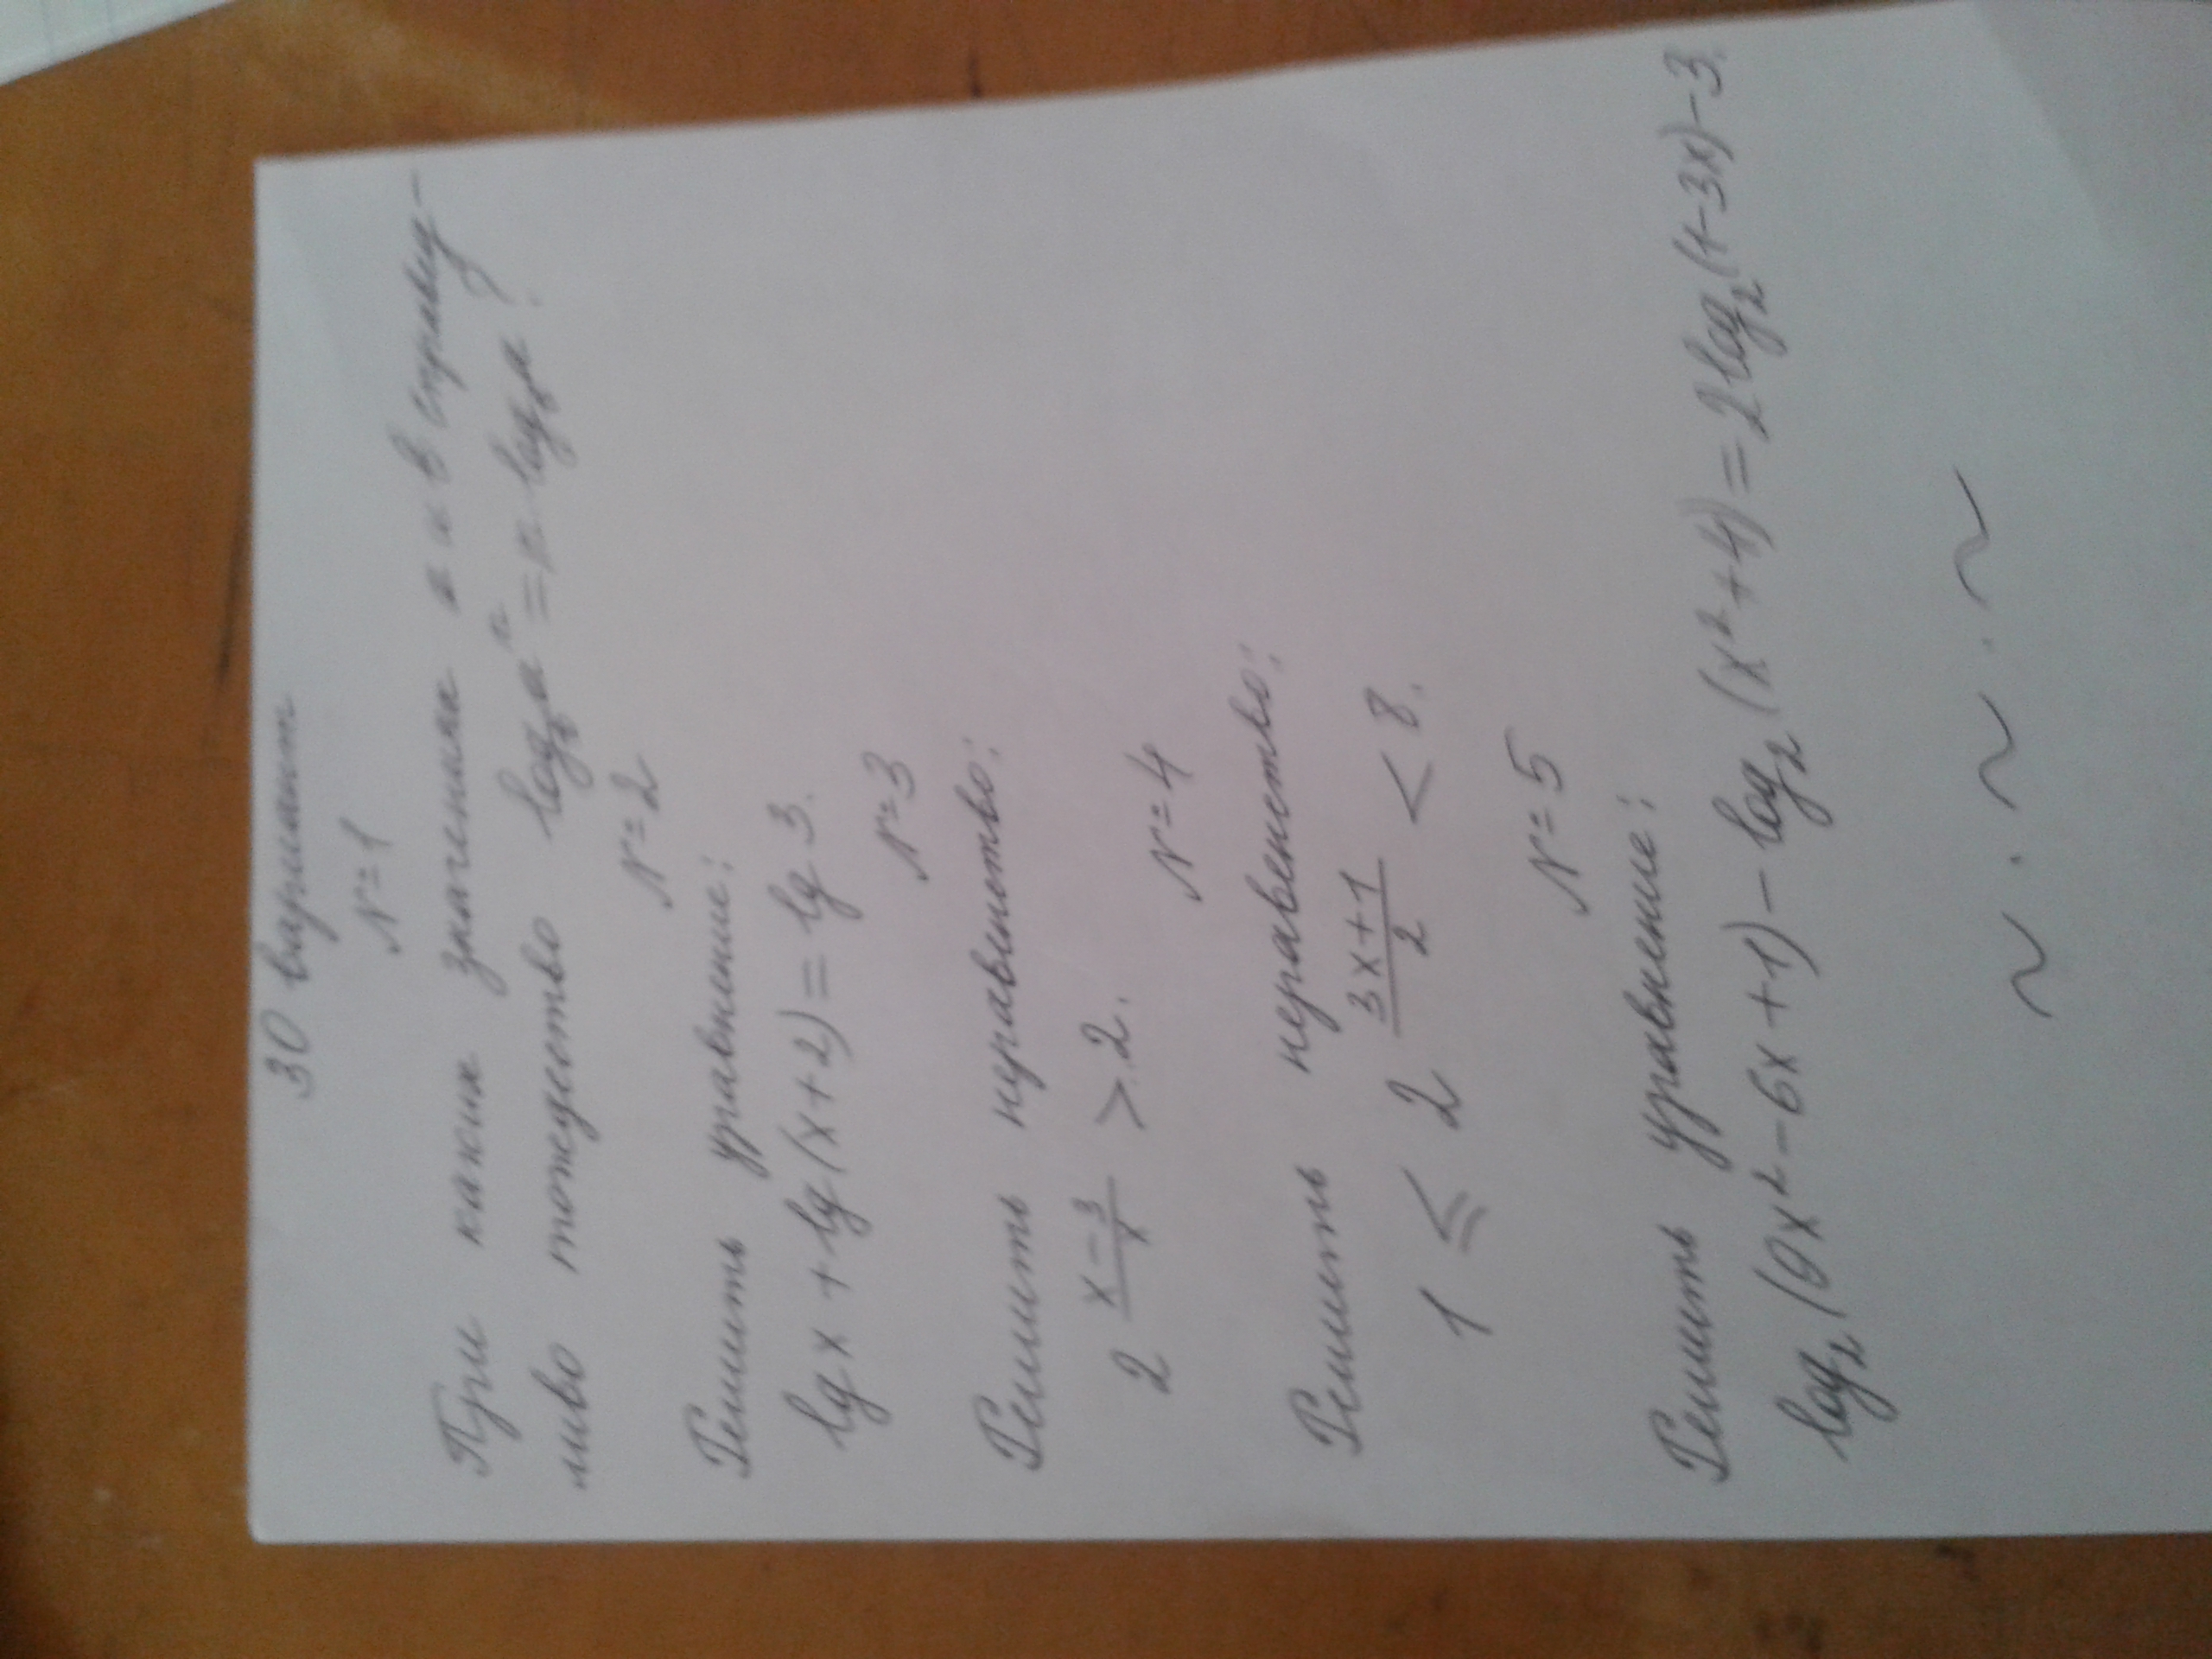 30 вариант
N=1
При каких значениях a и b справед-
ливо тождество log_b aⁿ = n log_b a?
N=2
Решить уравнение:
lg x + lg(x+2) = lg 3.
N=3
Решить неравенство:
2^((x-3)/x) > 2.
N=4
Решить неравенство:
1 ≤ 2^((3x+1)/2) < 8.
N=5
Решить уравнение:
log₂(9x²-6x+1) - log₂(x²+4) = 2log₂(1-3x)-3.